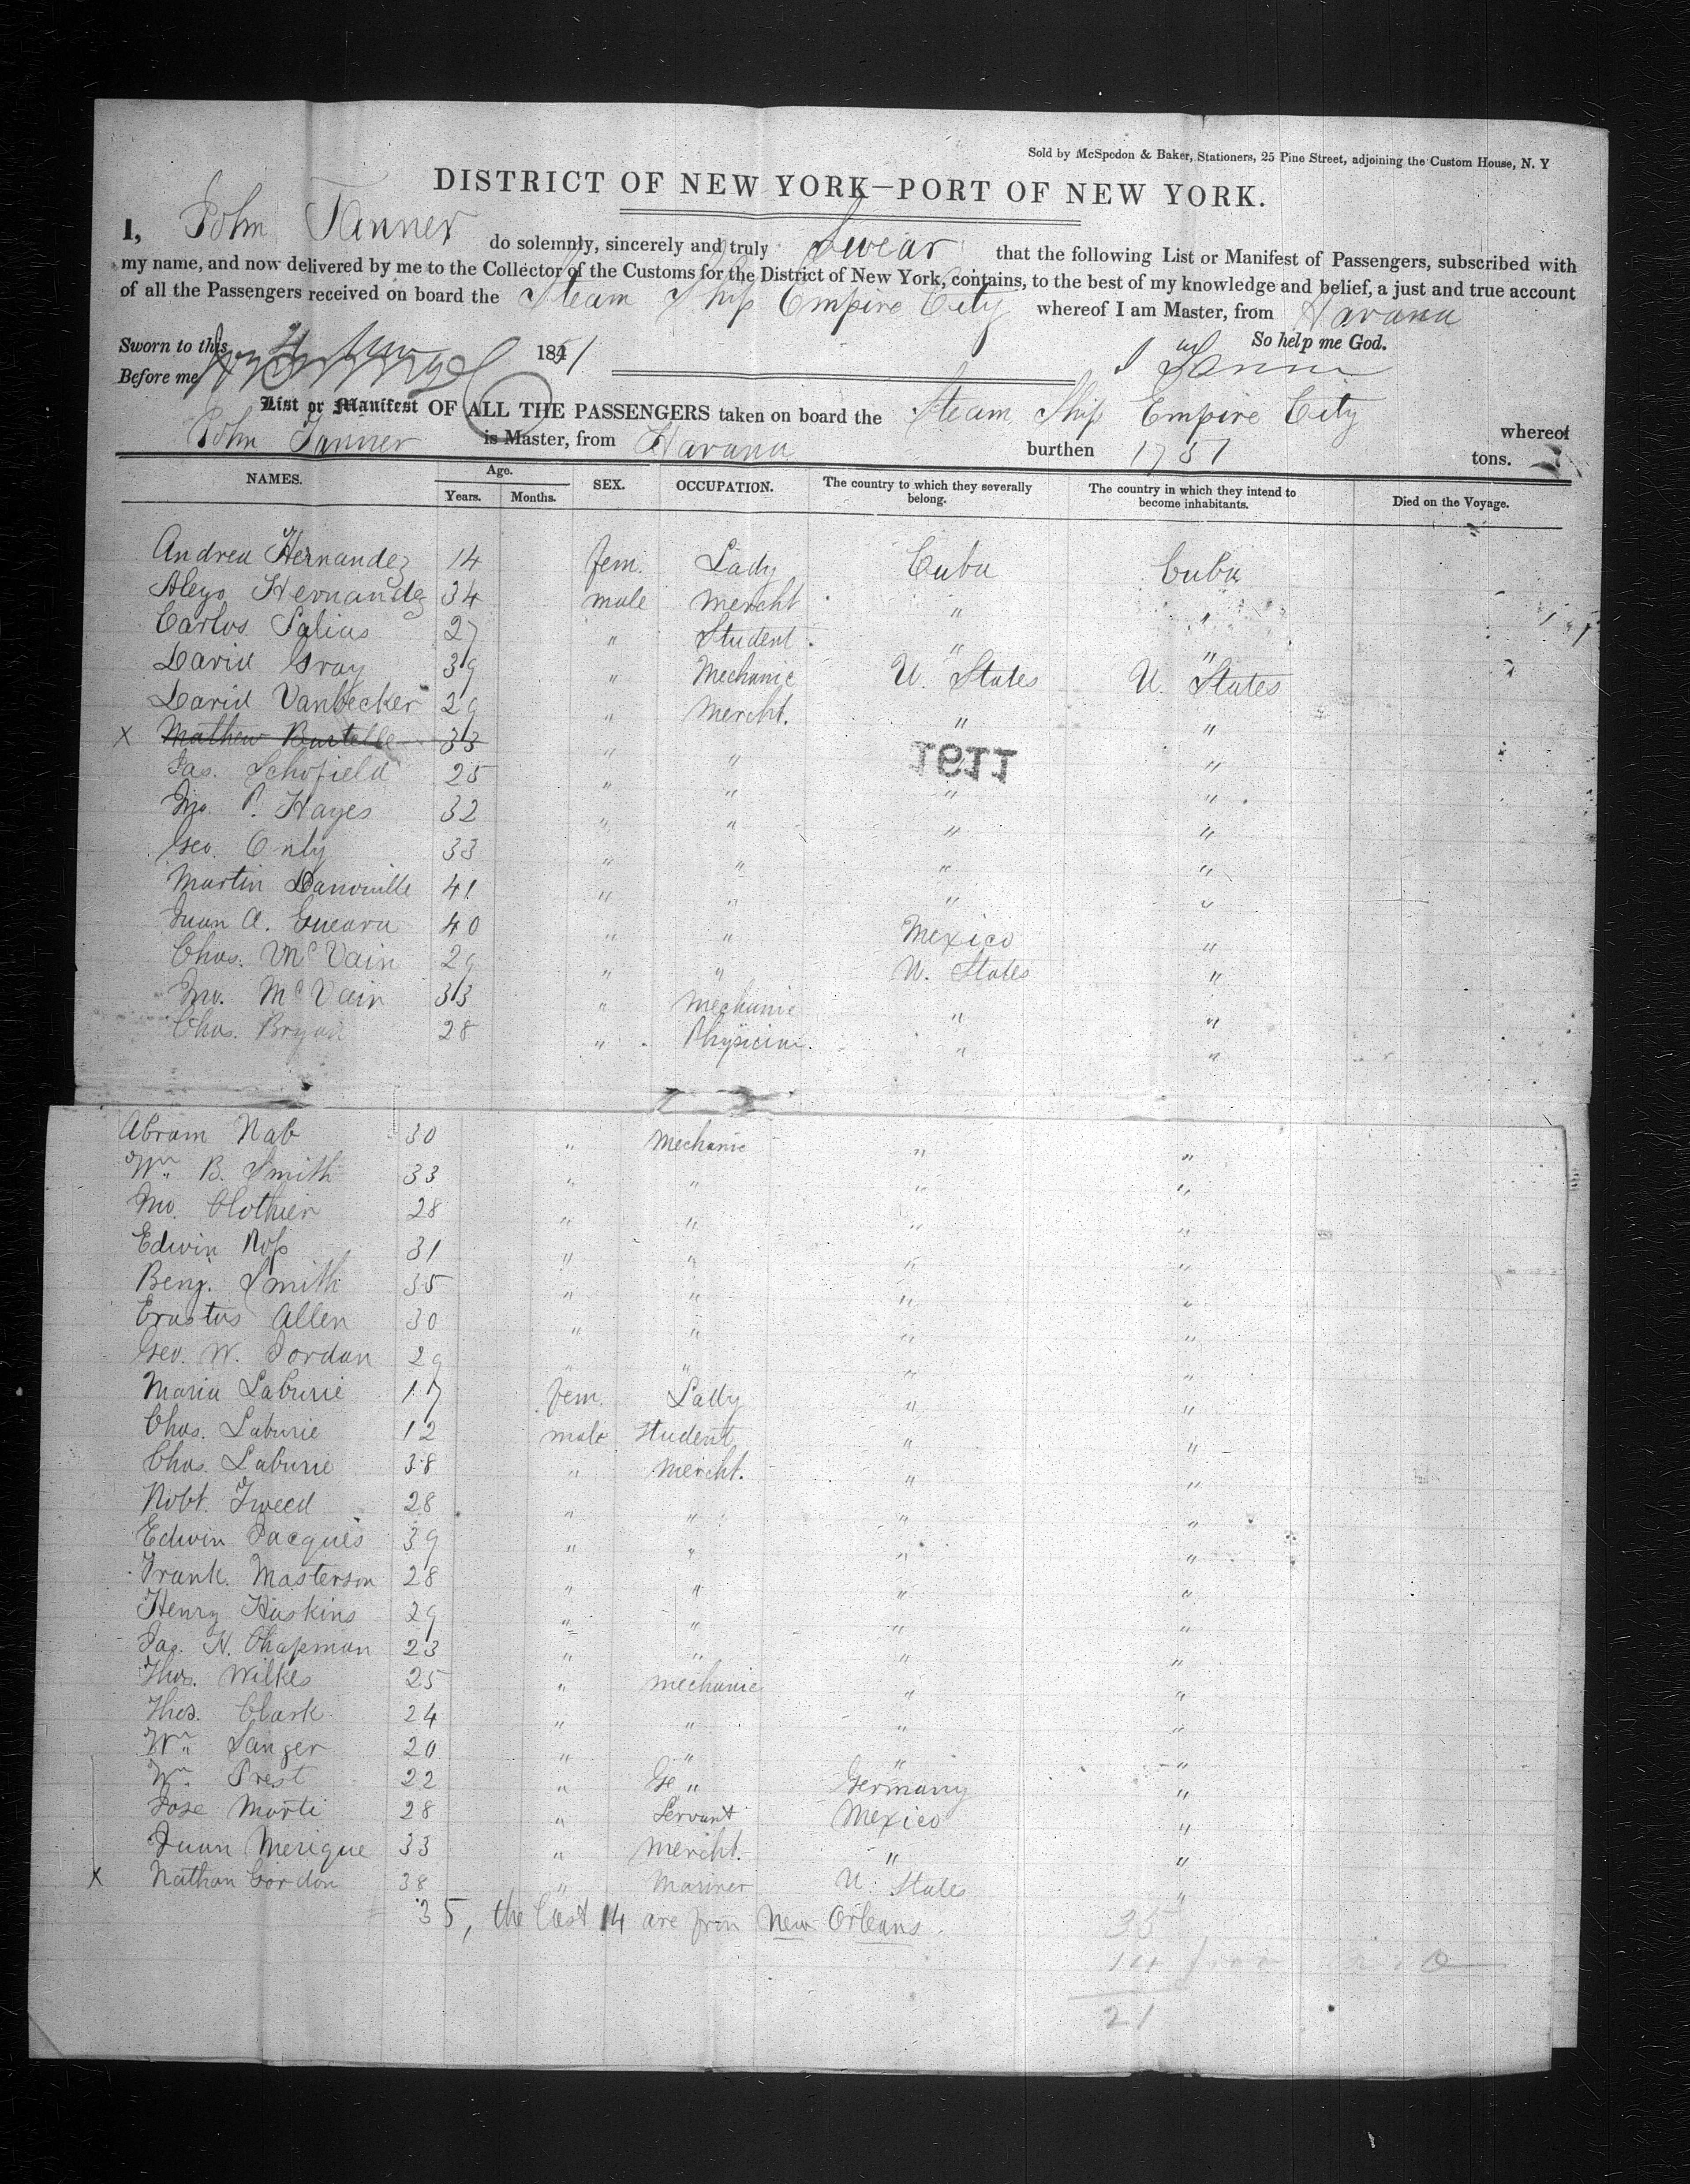 Sold by McSpedon & Baker, Stationers, 25 Pine Street, adjoining the Custom House, N. Y
DISTRICT OF NEW YORK—PORT OF NEW YORK.
I, John Tanner do solemnly, sincerely and truly Swear that the following List or Manifest of Passengers, subscribed with
my name, and now delivered by me to the Collector of the Customs for the District of New York, contains, to the best of my knowledge and belief, a just and true account
of all the Passengers received on board the Steam Ship Empire City whereof I am Master, from Havana
Sworn to this 1851 So help me God.
Before me J Tanner
List or Manifest OF ALL THE PASSENGERS taken on board the Steam Ship Empire City whereof
John Tanner is Master, from Havana burthen 1751 tons.
NAMES. Age. Years. Months. SEX. OCCUPATION. The country to which they severally belong. The country in which they intend to become inhabitants. Died on the Voyage.
Andrea Hernandez 14 fem. Lady Cuba Cuba
Aleyo Hernandez 34 male mercht " "
Carlos Salias 27 " Student " "
David Gray 39 " Mechanic U. States U. States
David Vanbecker 29 " Mercht. " "
X Mathew 33 " " "
1191
Jas. Schofield 25 " " " "
Jno. P. Hayes 32 " " " "
Geo. Only 33 " " " "
Martin 41 " " " "
Juan A. Guevara 40 " " Mexico "
Chas. McVain 29 " " U. States "
Jno. McVain 33 " Mechanic " "
Chas. Bryan 28 " Physician. " "
Abram Nab 30 " Mechanic " "
Wm. B. Smith 33 " " " "
Jno. Clothier 28 " " " "
Edwin Ross 31 " " " "
Benj. Smith 35 " " " "
Erastus Allen 30 " " " "
Geo. W. Jordan 29 " " " "
Maria Laburie 17 fem. Lady " "
Chas. Laburie 12 male Student " "
Chas. Laburie 38 " Mercht. " "
Robt. Tweed 28 " " " "
Edwin Jacques 39 " " " "
Frank. Masterson 28 " " " "
Henry Huskins 29 " " " "
Jas. H. Chapman 23 " " " "
Thos. Wilkes 25 " mechanic " "
Thos. Clark 24 " " " "
Wm. Sanger 20 " " " "
Wm. Prest 22 " Ge " Germany "
Jose Marti 28 " Servant Mexico "
Juan Merique 33 " Mercht. " "
X Nathan Gordon 38 " Mariner U. States "
35, the last 14 are from New Orleans. 35
14
21